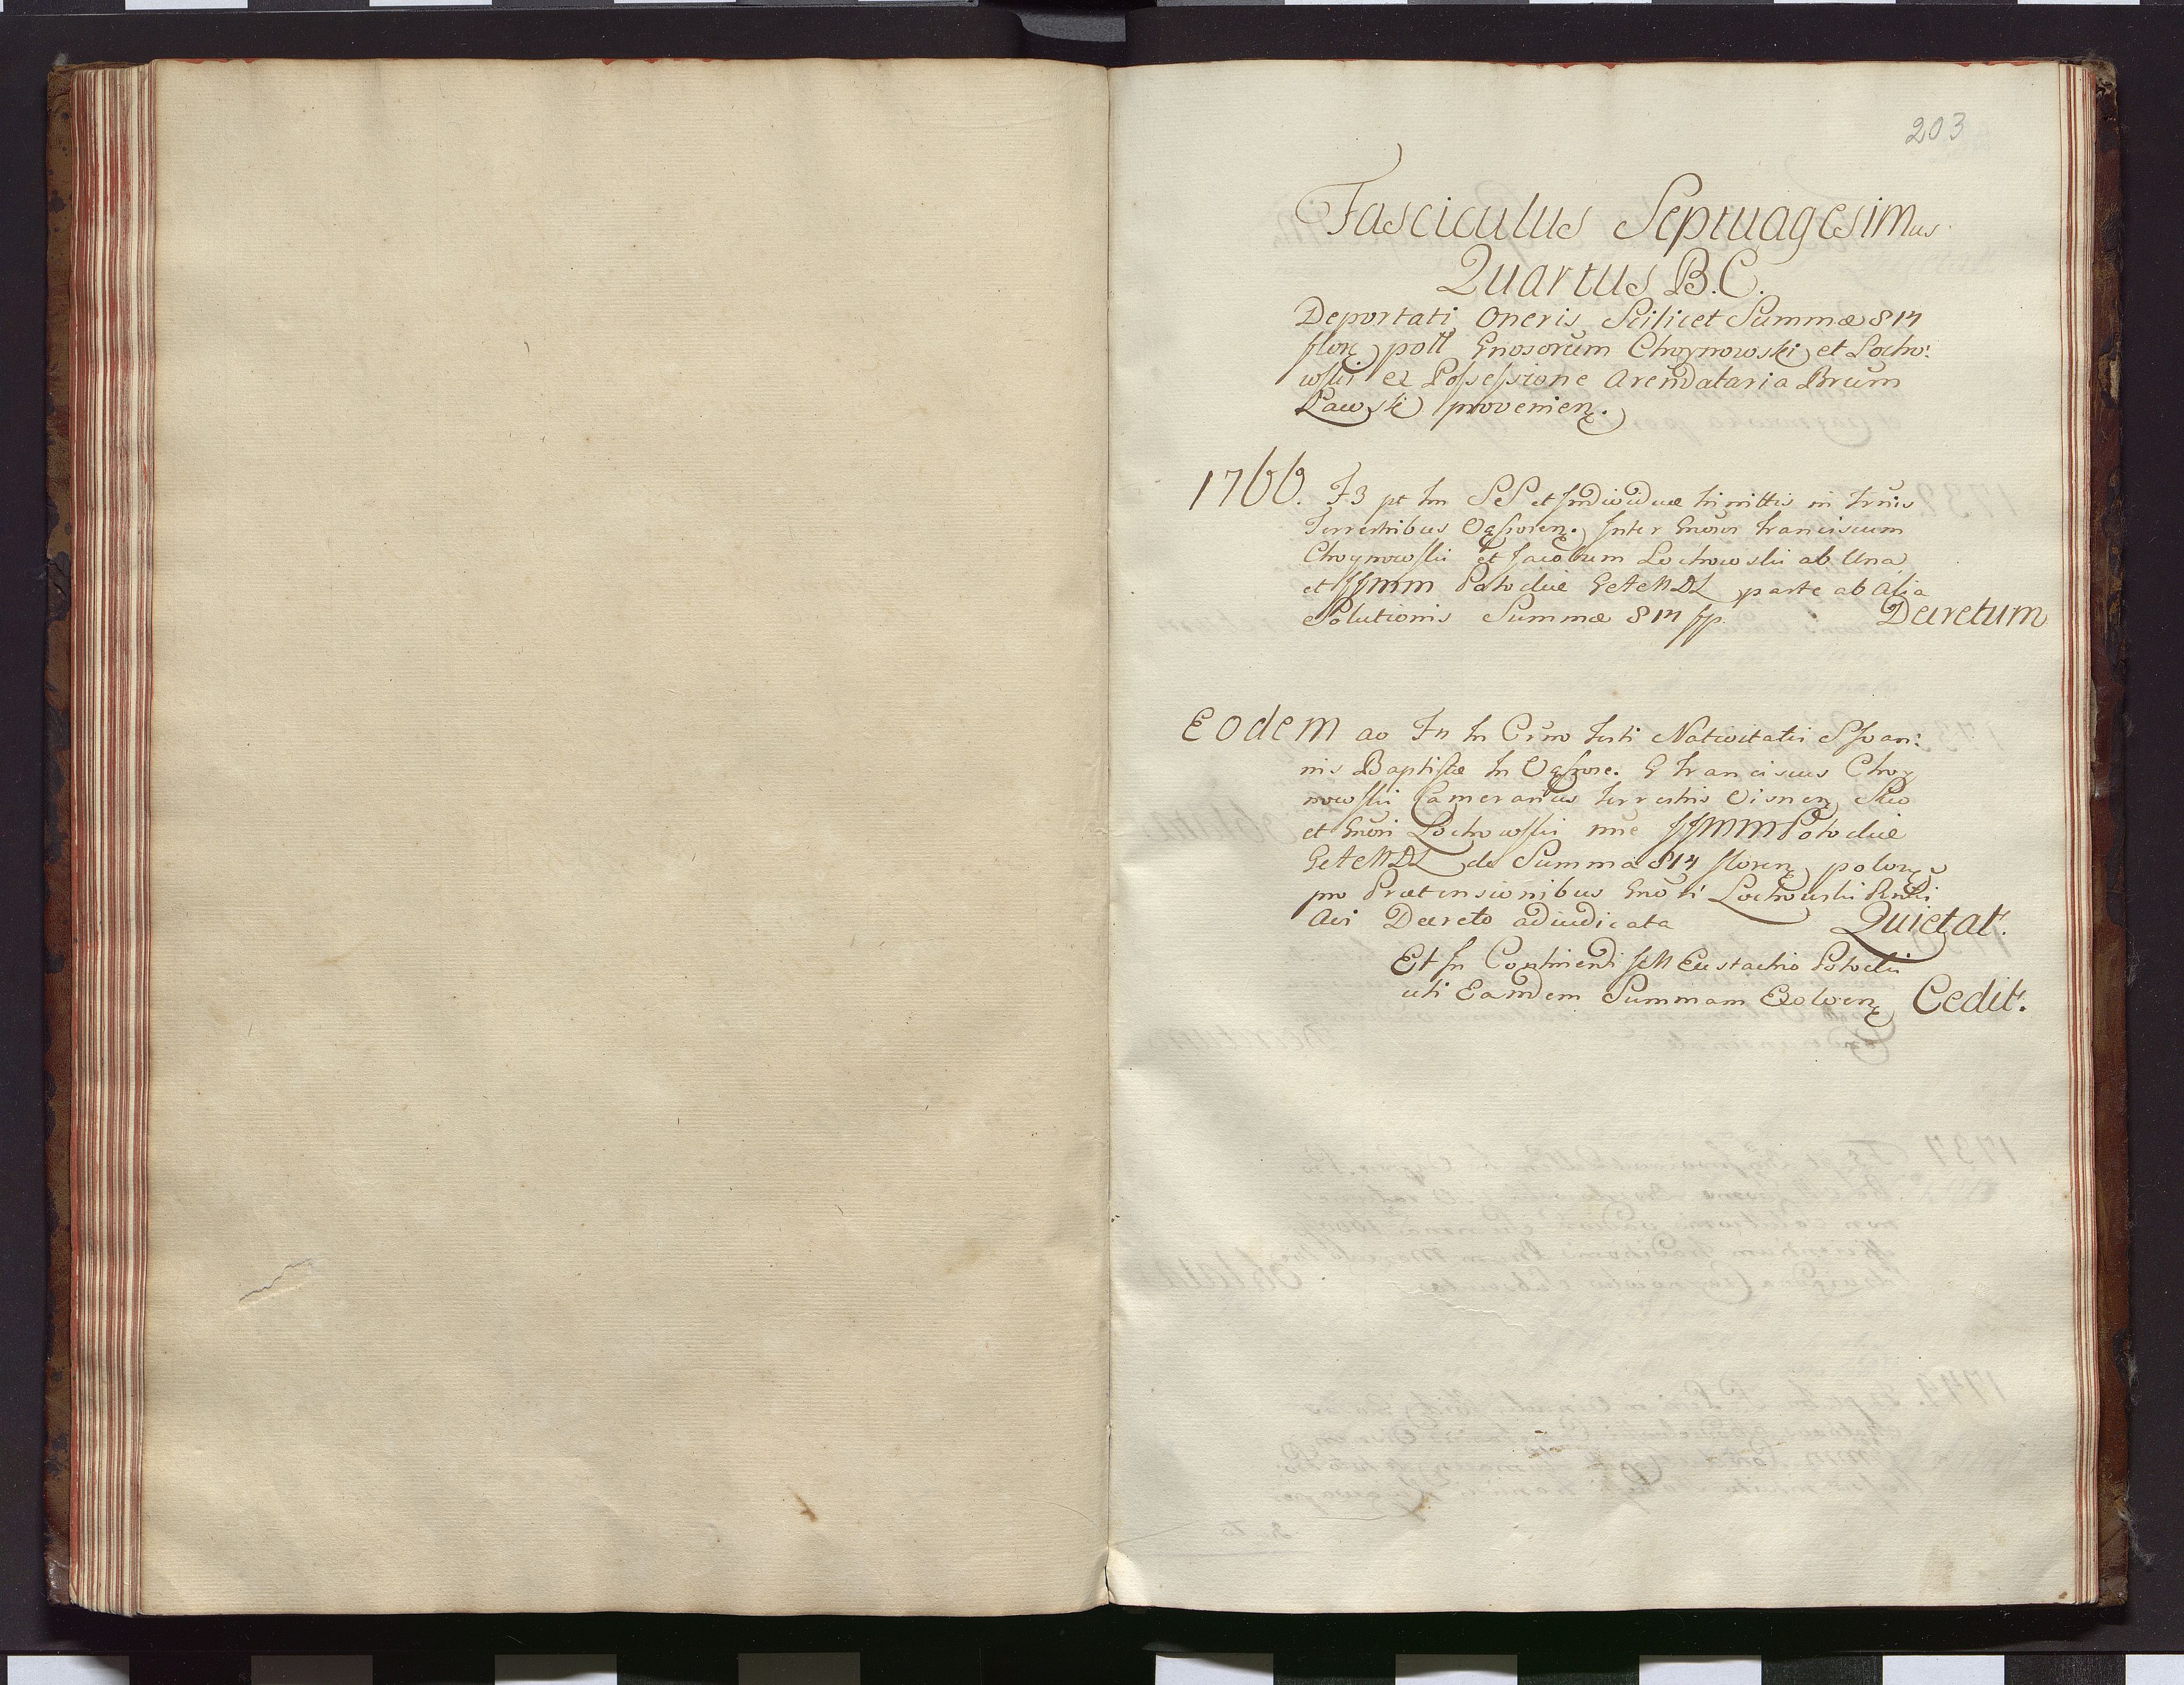 203
Fasciculus Septuagesimus
Quartus B.C.
Deportati Oneris Scilicet Summæ 814
flor. poll Gnosorum Choynowski et Locho:
wski ex Possessione Arendataria Brum
Pawski provenien.
1766. F3 pt Im SS et Individuæ Trinittis in Trnis
Terrestribus Varsovien. Inter Gnosos Franciscum
Choynowski et Jacobum Lochowski ab Una
et JJMM Potockie GetAeMDL parte ab Alia
Solutionis Summæ 814 fp. Decretum
Eodem ao In Crmo Festi Nativitatis S Joan:
nis Baptistæ In Varsov. G Franciscus Choy
nowski Camerarius Terrestris Visnen, Suo
et Gnosi Lochowski nne JJMM Potockie
GetAeMDL de Summa 814 floren, polon,
pro Prætensionibus Gnosi Lochowski
Aei Decreto adiudicata Quietat.
Et In Continenti Eustachio Potocki
uti Eamdem Summam Exolven, Cedit.